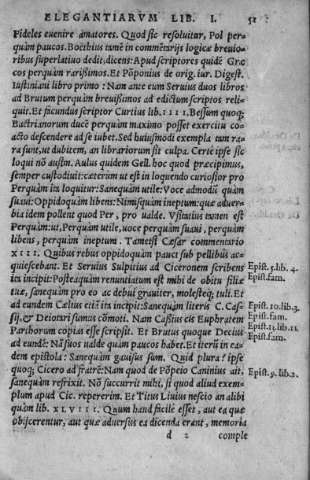 ELEGANTIARVM LIB. I. 51
Fideles euenire amatores. Quod sic resoluitur, Pol per-
quàm paucos. Boethius tamē in commētarijs logicæ breuio-
ribus superlatiuo dedit, dicens: Apud scriptores quidē Græ-
cos perquàm rarissimos. Et Pōponius de orig. iur. Digest.
Iustiniani libro primo: Nam ante eum Seruius duos libros
ad Brutum perquàm breuissimos ad edictum scriptos reli-
quit. Et secundus scriptor Curtius lib. IIII. Bessum quoq;
Bactrianorum ducē perquàm maximo posset exercitu co-
acto descendere ad se iubet. Sed huiusmodi exempla tam ra-
ra sunt, ut dubitem, an librariorum sit culpa. Certè ipse sic
loqui nō ausim. Aulus quidem Gell. hoc quod præcipimus,
semper custodiuit: cæterum ut est in loquendo curiosior pro
Perquàm ita loquitur: Sanequàm utile: Voce admodū quàm
suaui: Oppidòquàm libens: Nimisquàm ineptum: quæ aduer-
bia idem pollent quod Per, pro ualde. Vsitatius tamen est
Perquàm: ut, Perquàm utile, uoce perquàm suaui, perquàm
libens, perquàm ineptum. Tametsi Cæsar commentario
XIII. Quibus rebus oppidòquàm pauci sub pellibus ac-
quiescebant. Et Seruius Sulpitius ad Ciceronem scribens
ita incipit: Posteaquàm renuntiatum est mihi de obitu filiæ
tuæ, sanequàm pro eo ac debui grauiter, molesteq; tuli. Et
ad eundem Cælius etiā ita incipit: Sanequàm literis C. Cas-
sij, & Deiotari sumus cōmoti. Nam Cassius cis Euphratem
Parthorum copias esse scripsit. Et Brutus quoque Decius
ad eundē: Nā suos ualde quàm paucos habet. Et iterū in ea-
dem epistola: Sanequàm gauisus sum. Quid plura? ipse
quoq; Cicero ad fratrē: Nam quod de Pōpeio Caninius ait,
sanequàm refrixit. Nō succurrit mihi, si quod aliud exem-
plum apud Cic. repererim. Et Titus Liuius nescio an alibi
quàm lib. XLVIII. Quum haud facilè esset, aut ea quæ
obijcerentur, aut quæ aduersus ea dicenda erant, memoria
d 2 comple
Epist. 5. lib. 4.
Epist. fam.
Epist. 10. lib. 3.
Epist. fam.
Epist. 11. lib. 11
Epist. fam.
Epist. 9. lib. 2.